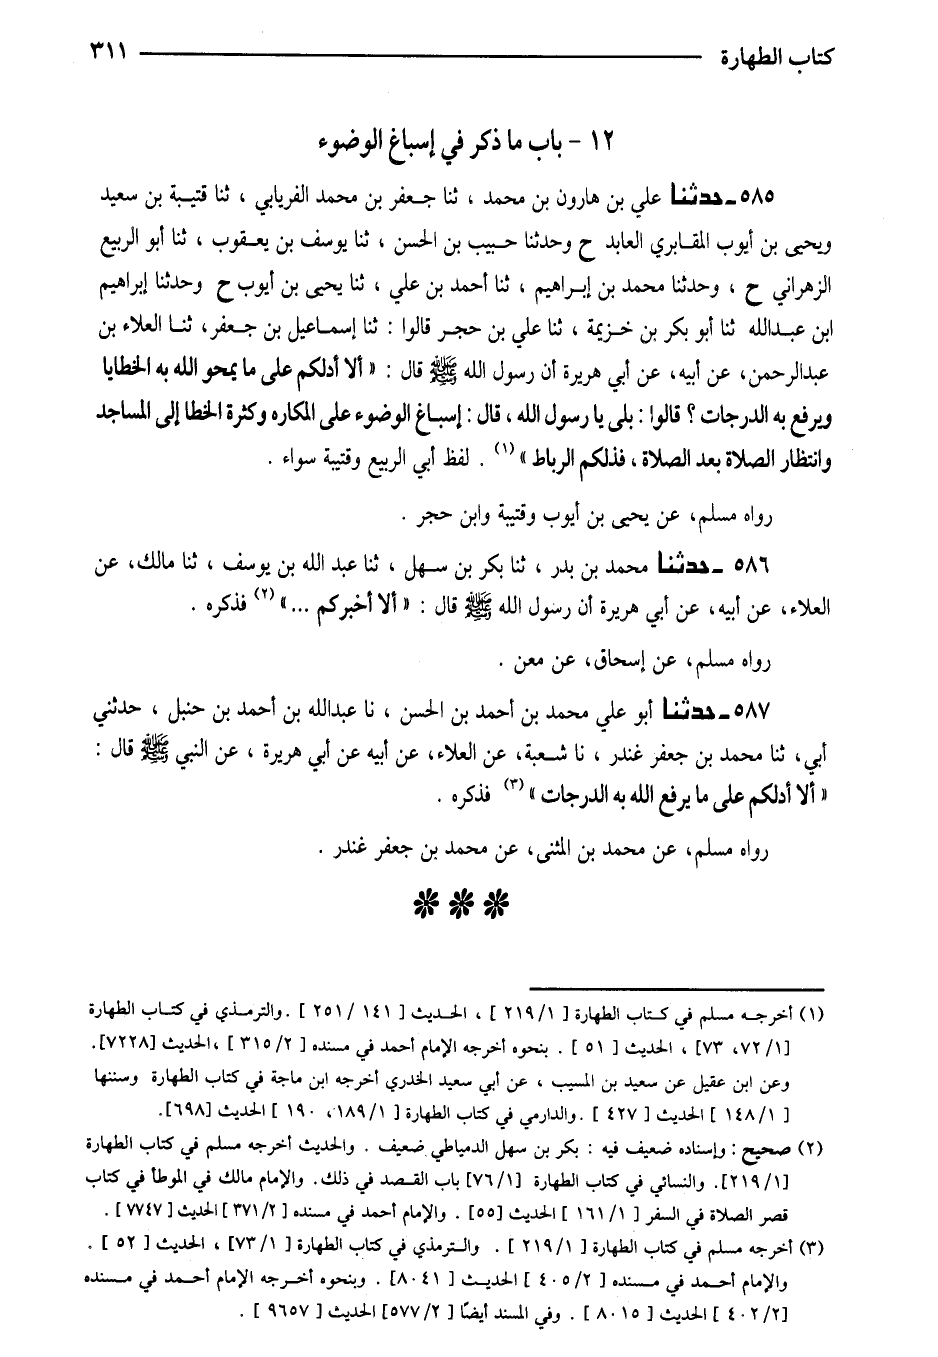 كتاب الطهارة ٣١١
١٢ - باب ما ذكر في إسباغ الوضوء
٥٨٥ ـ حدثنا علي بن هارون بن محمد ، ثنا جعفر بن محمد الفريابي ، ثنا قتيبة بن سعيد
ويحيى بن أيوب المقابري العابد ح وحدثنا حبيب بن الحسن ، ثنا يوسف بن يعقوب ، ثنا أبو الربيع
الزهراني ح ، وحدثنا محمد بن إبراهيم ، ثنا أحمد بن علي ، ثنا يحيى بن أيوب ح وحدثنا إبراهيم
ابن عبدالله ثنا أبو بكر بن خزيمة ، ثنا علي بن حجر قالوا : ثنا إسماعيل بن جعفر، ثنا العلاء بن
عبدالرحمن، عن أبيه، عن أبي هريرة أن رسول الله ﷺ قال : « ألا أدلكم على ما يمحو الله به الخطايا
ويرفع به الدرجات ؟ قالوا : بلى يا رسول الله ، قال : إسباغ الوضوء على المكاره وكثرة الخطا إلى المساجد
وانتظار الصلاة بعد الصلاة ، فذلكم الرباط » (١) . لفظ أبي الربيع وقتيبة سواء .
رواه مسلم، عن يحيى بن أيوب وقتيبة وابن حجر .
٥٨٦ ـ حدثنا محمد بن بدر ، ثنا بكر بن سهل ، ثنا عبد الله بن يوسف ، ثنا مالك، عن
العلاء، عن أبيه، عن أبي هريرة أن رسول الله ﷺ قال : « ألا أخبركم ... » (٢) فذكره .
رواه مسلم، عن إسحاق، عن معن .
٥٨٧ ـ حدثنا أبو علي محمد بن أحمد بن الحسن ، نا عبدالله بن أحمد بن حنبل ، حدثني
أبي، ثنا محمد بن جعفر غندر ، نا شعبة، عن العلاء، عن أبيه عن أبي هريرة ، عن النبي ﷺ قال :
« ألا أدلكم على ما يرفع الله به الدرجات » (٣) فذكره .
رواه مسلم، عن محمد بن المثنى، عن محمد بن جعفر غندر .
(١) أخرجه مسلم في كتاب الطهارة [ ٢١٩/١ ] ، الحديث [ ١٤١ /٢٥١ ] .والترمذي في كتاب الطهارة
[٧٢/١، ٧٣] ، الحديث [ ٥١ ] . بنحوه أخرجه الإمام أحمد في مسنده [ ٣١٥/٢ ] ،الحديث [٧٢٢٨].
وعن ابن عقيل عن سعيد بن المسيب ، عن أبي سعيد الخدري أخرجه ابن ماجة في كتاب الطهارة وسننها
[ ١٤٨/١ ] الحديث [ ٤٢٧ ] .والدارمي في كتاب الطهارة [ ١٨٩/١، ١٩٠ ] الحديث [٦٩٨].
(٢) صحيح : وإسناده ضعيف فيه : بكر بن سهل الدمياطي ضعيف . والحديث أخرجه مسلم في كتاب الطهارة
[٢١٩/١]. والنسائي في كتاب الطهارة [٧٦/١] باب القصد في ذلك. والإمام مالك في الموطأ في كتاب
قصر الصلاة في السفر [ ١٦١/١ ] الحديث [٥٥] . والإمام أحمد في مسنده [ ٣٧١/٢ ] الحديث [ ٧٧٤٧ ] .
(٣) أخرجه مسلم في كتاب الطهارة [ ٢١٩/١ ] . والترمذي في كتاب الطهارة [ ٧٣/١] ، الحديث [ ٥٢ ] .
والإمام أحمد في مسنده [ ٤٠٥/٢ ] الحديث [ ٨٠٤١] . وبنحوه أخرجه الإمام أحمد في مسنده
[٤٠٢/٢ ] الحديث [ ٨٠١٥ ] . وفي المسند أيضًا [ ٥٧٧/٢] الحديث [ ٩٦٥٧ ] .